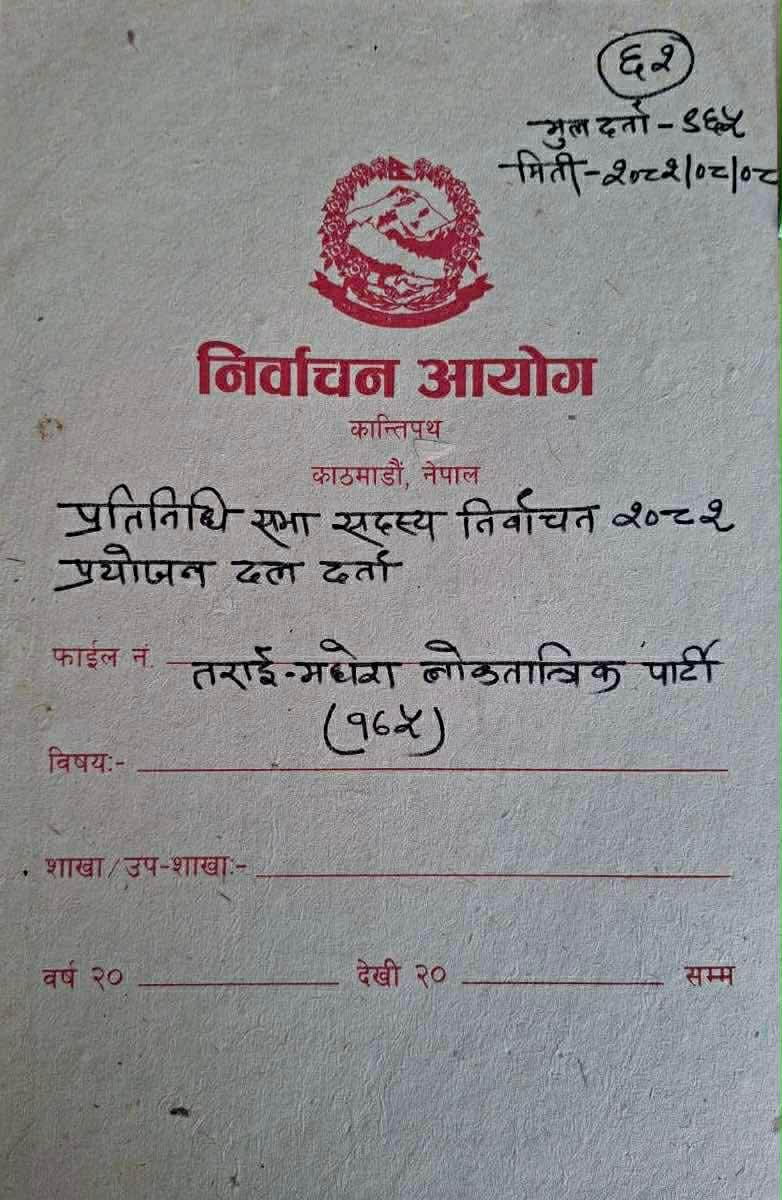 ६२
मुल दर्ता - ९६५
मिती - २०८२/०८/०८
निर्वाचन आयोग
कान्तिपथ
काठमाडौं, नेपाल
प्रतिनिधि सभा सदस्य निर्वाचन २०८२
प्रयोजन दल दर्ता
फाईल नं. तराई-मधेश लोकतान्त्रिक पार्टी
(१६५)
विषय:-
शाखा/उप-शाखा:-
वर्ष २० देखी २० सम्म